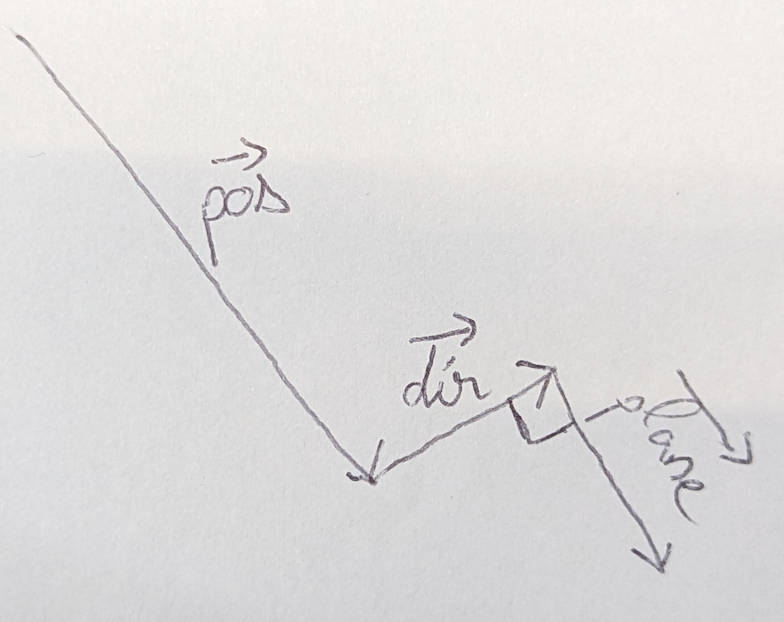 pos
dir
plane